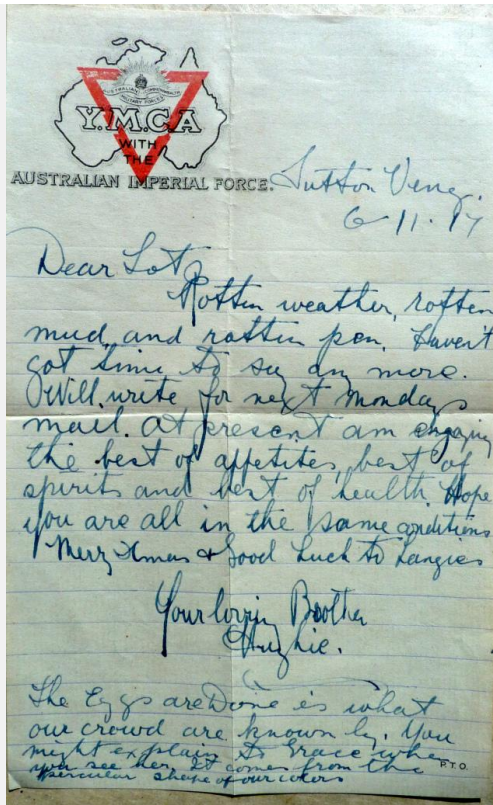 AUSTRALIAN COMMONWEALTH
MILITARY FORCES
Y.M.C.A
WITH
THE
AUSTRALIAN IMPERIAL FORCE.
Sutton Veny.
6-11-17
Dear Lot
Rotten weather, rotten
mud, and rotten pen. Haven't
got time to say any more.
Will write for next Mondays
mail. At present am enjoying
the best of appetites, best of
spirits and best of health. Hope
you are all in the same conditions
Merry Xmas & Good Luck to
Your lovin Brother
Hughie.
The Eggs are Done is what
our crowd are known by. You
might explain to Grace when
you see her. It comes from the
shape of our colors
P.T.O.